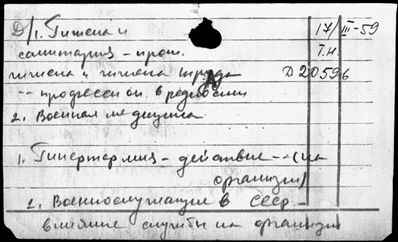 Д/1. Гигиена и
санитария – пром.
гигиена и гигиена труда
-- професси он. вредности
2. Военная медицина
17/III-59
Т.Н.
Д 20596
1. Гипертермия – действие -- (на
организм)
2. Военнослужащие в СССР –
влияние службы на организм